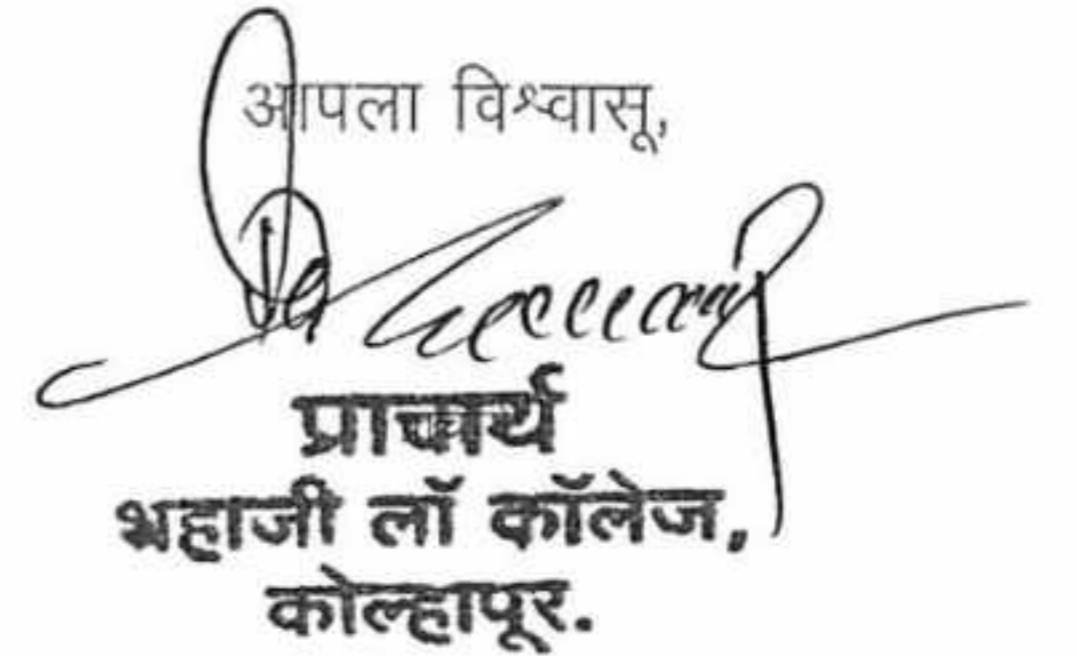 आपला विश्वासू,
प्राचार्य
भहाजी लॉ कॉलेज,
कोल्हापूर.